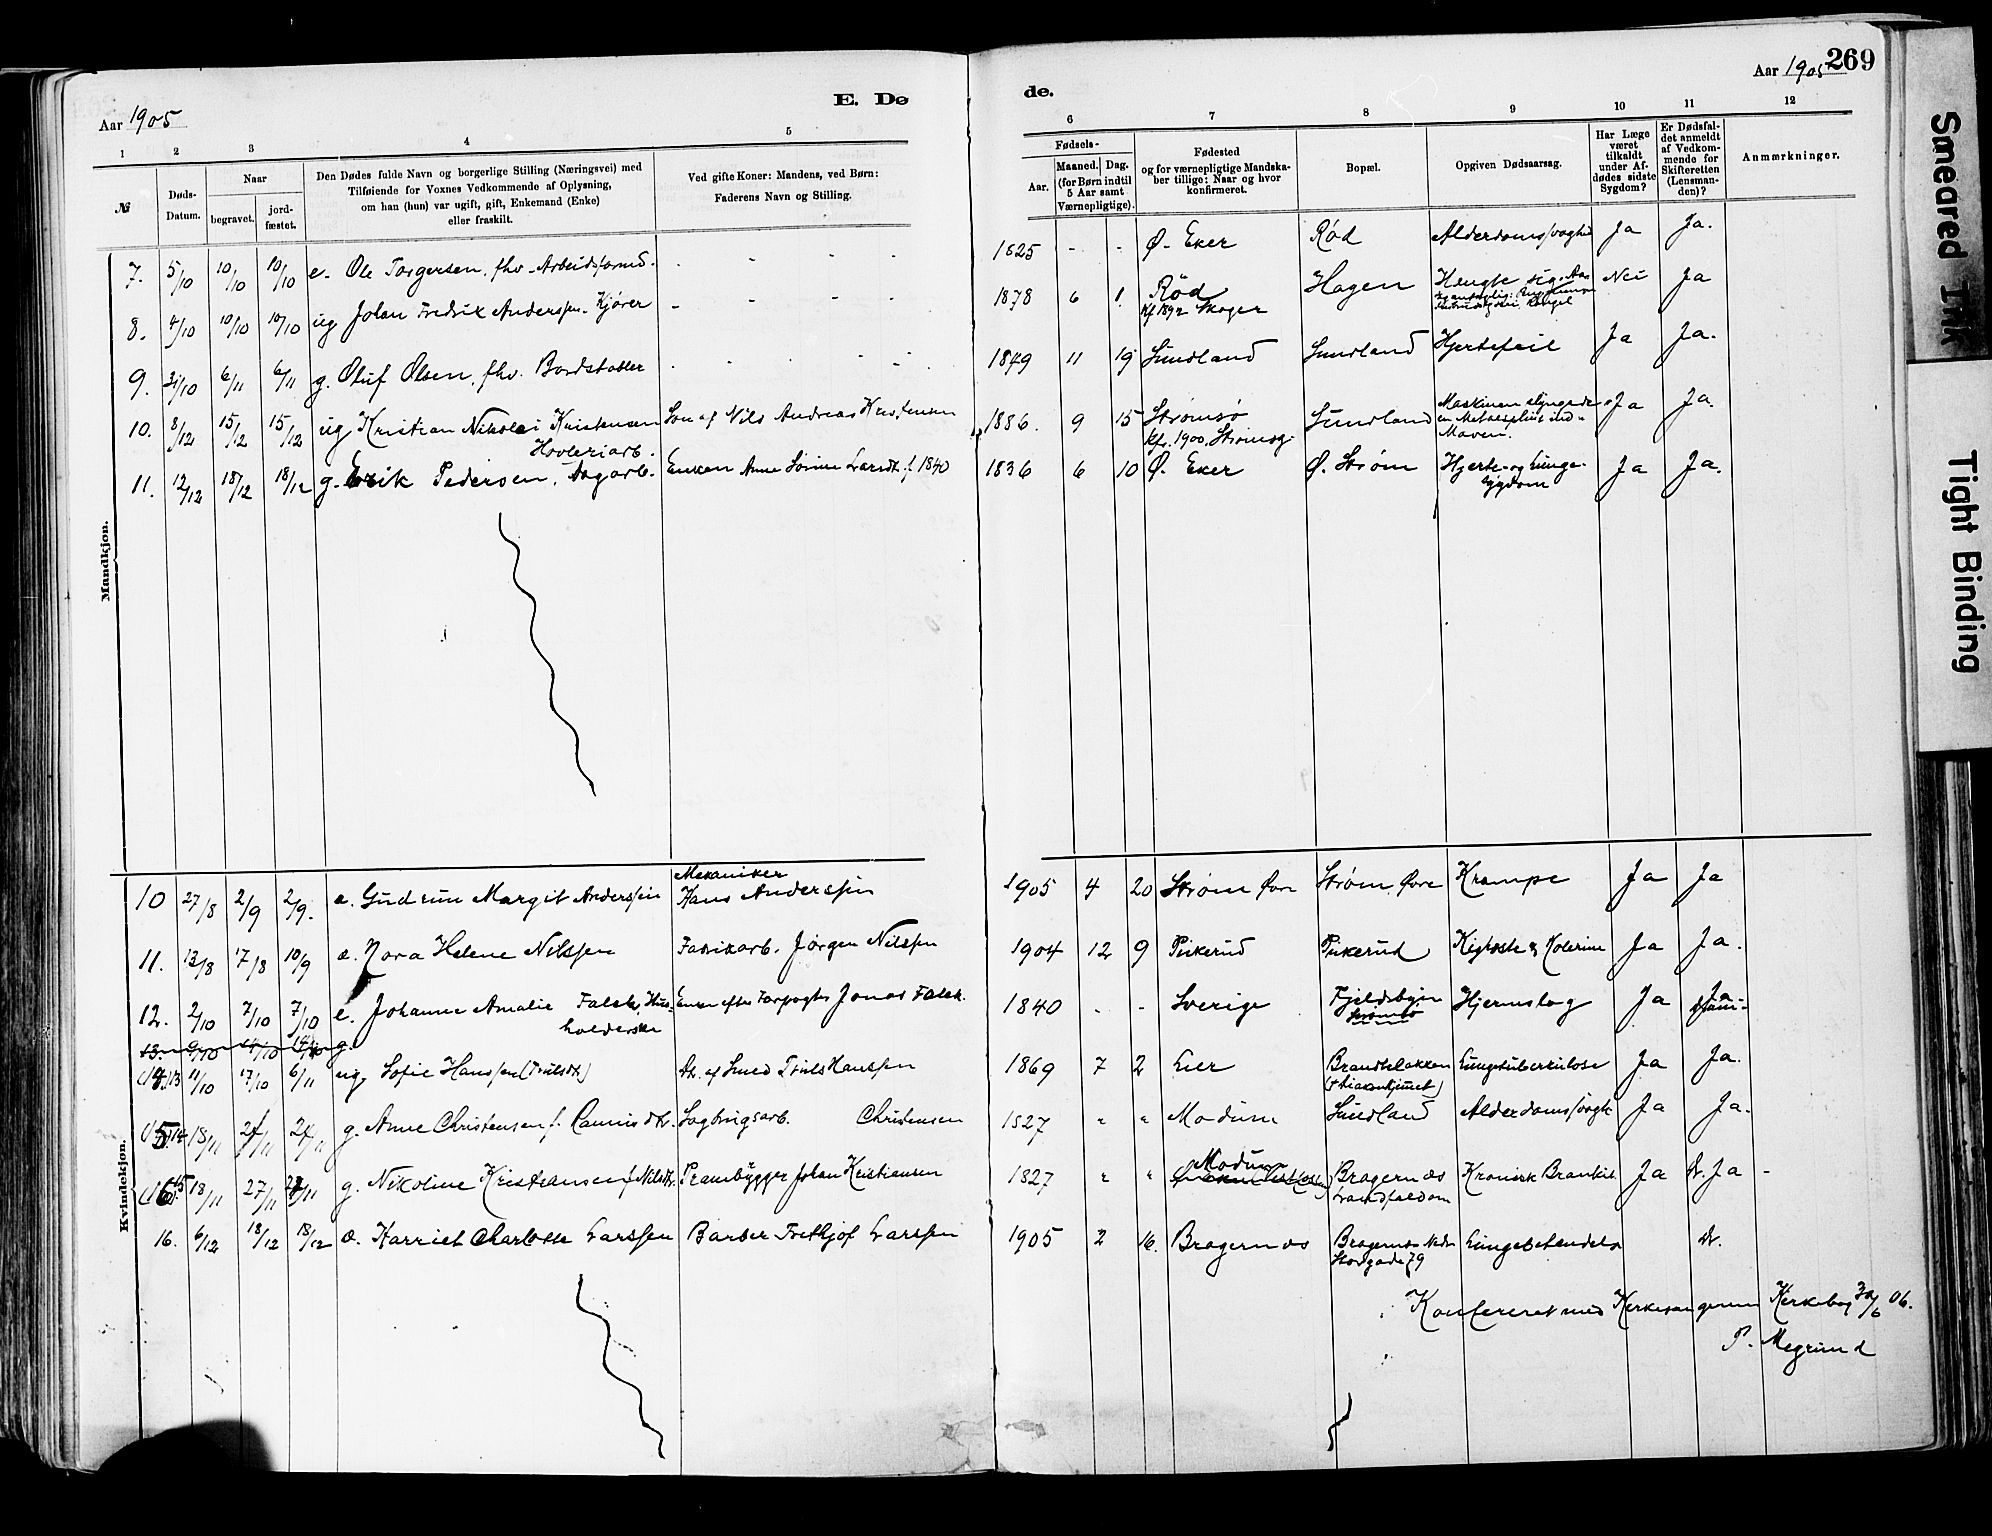 Aar 1905
E. Dø
1 2 3 4 5
№
Døds-Datum.
Naar
begravet.
jord-fæstet.
Den Dødes fulde Navn og borgerlige Stilling (Næringsvei) med
Tilføiende for Voxnes Vedkommende af Oplysning,
om han (hun) var ugift, gift, Enkemand (Enke)
eller fraskilt.
Ved gifte Koner: Mandens, ved Børn:
Faderens Navn og Stilling.
Mandkjøn.
7. 5/10 10/10 10/10 e. Ole Torgersen, fhv. Arbeidsformd. - - - -
8. 4/10 10/10 10/10 ug Johan Fredrik Anderssen. Kjører - - - -
9. 31/10 6/11 6/11 g. Oluf Olsen, fhv. Bordstabler - - - -
10. 8/12 15/12 15/12 ug Kristian Nikolai Kristensen Søn af Nils Andreas Kristensen
Høvleriarb.
11. 12/12 18/12 18/12 g. Erik Pedersen, Dagarb. Enken Anne Sørine Larsdt. f. 1840
10 27/8 2/9 2/9. æ. Gudrun Margit Anderssen Mekaniker
Hans Anderssen
11. 13/8 17/8 10/9 æ. Nora Helene Nilssen Fabrikarb. Jørgen Nilssen
12. 2/10 7/10 7/10 e. Johanne Amalie Falck, Hus- Enken efter Jonas Falck.
holderske
13. 9/10 14/10 g.
13 11/10 17/10 6/11 ug. Sofie Hanssen (Truilsdt.) Dt. af Smed Truls Hanssen
14 18/11 24/11 24/11 g. Anne Christensen f. Sagbrugsarb. Christensen
15 18/11 27/11 27/11 g. Nikoline Kristiansen f. Nilsdt. Prambygger Johan Kristiansen
16. 6/12 18/12 18/12 æ. Harriet Charlotte Larssen Barber Frithjof Larssen
Kvindekjøn.
de.
Aar 1905
269
6 7 8 9 10 11 12
Fødsels-
Aar.
Maaned.
Dag.
(for Børn indtil
5 Aar samt
Værnepligtige).
Fødested
og for værnepligtige Mandska-
ber tillige: Naar og hvor
konfirmeret.
Bopæl.
Opgiven Dødsaarsag.
Har Læge
været
tilkaldt
under Af-
dødes sidste
Sygdom?
Er Dødsfal-
det anmeldt
af Vedkom-
mende for
Skifteretten
(Lensman-
den)?
Anmærkninger.
1825 - - Ø. Eker Rød Alderdomssvaghed Ja Ja.
1878 6 1. Rød Hagen Hengte sig. Nei Ja
Kf 1892 Skoger
1849 11 19 Sundland Sundland Hjertefeil Ja Ja.
1886. 9 15 Strømsø Sundland Maskinen slyngede Ja Ja.
Kfr. 1900. Strømsg. en Metalsplint ind i
Maven.
1836 6 10 Ø. Eker Ø. Strøm Hjerte- og Lunge- Ja Ja.
sygdom
1905 4 20 Strøm Øvre Strøm Øvre Krampe Ja Ja
1904 12 9 Pukerud Pukerud Kighoste & Kolerine Ja Ja.
1840 - - Sverige Fjeldsbyen Hjerneslag Ja Ja
Strømsø
1869 7 2 Lier Brandteløkken Lungetuberkulose Ja Ja.
1827 " " Modum Sundland Alderdomssvaghed Ja Ja.
1827 " " Modum Bragernæs Kronisk Bronkit Ja Ja -
Landfaldøen
1905 2 16. Bragernæs Bragernæs Nedre Lungebetændelse
Storgade 79
Konfereret med Kirkesangerens Kirkebog 30/6 06.
P. Megrund
Smeared Ink
Tight Binding